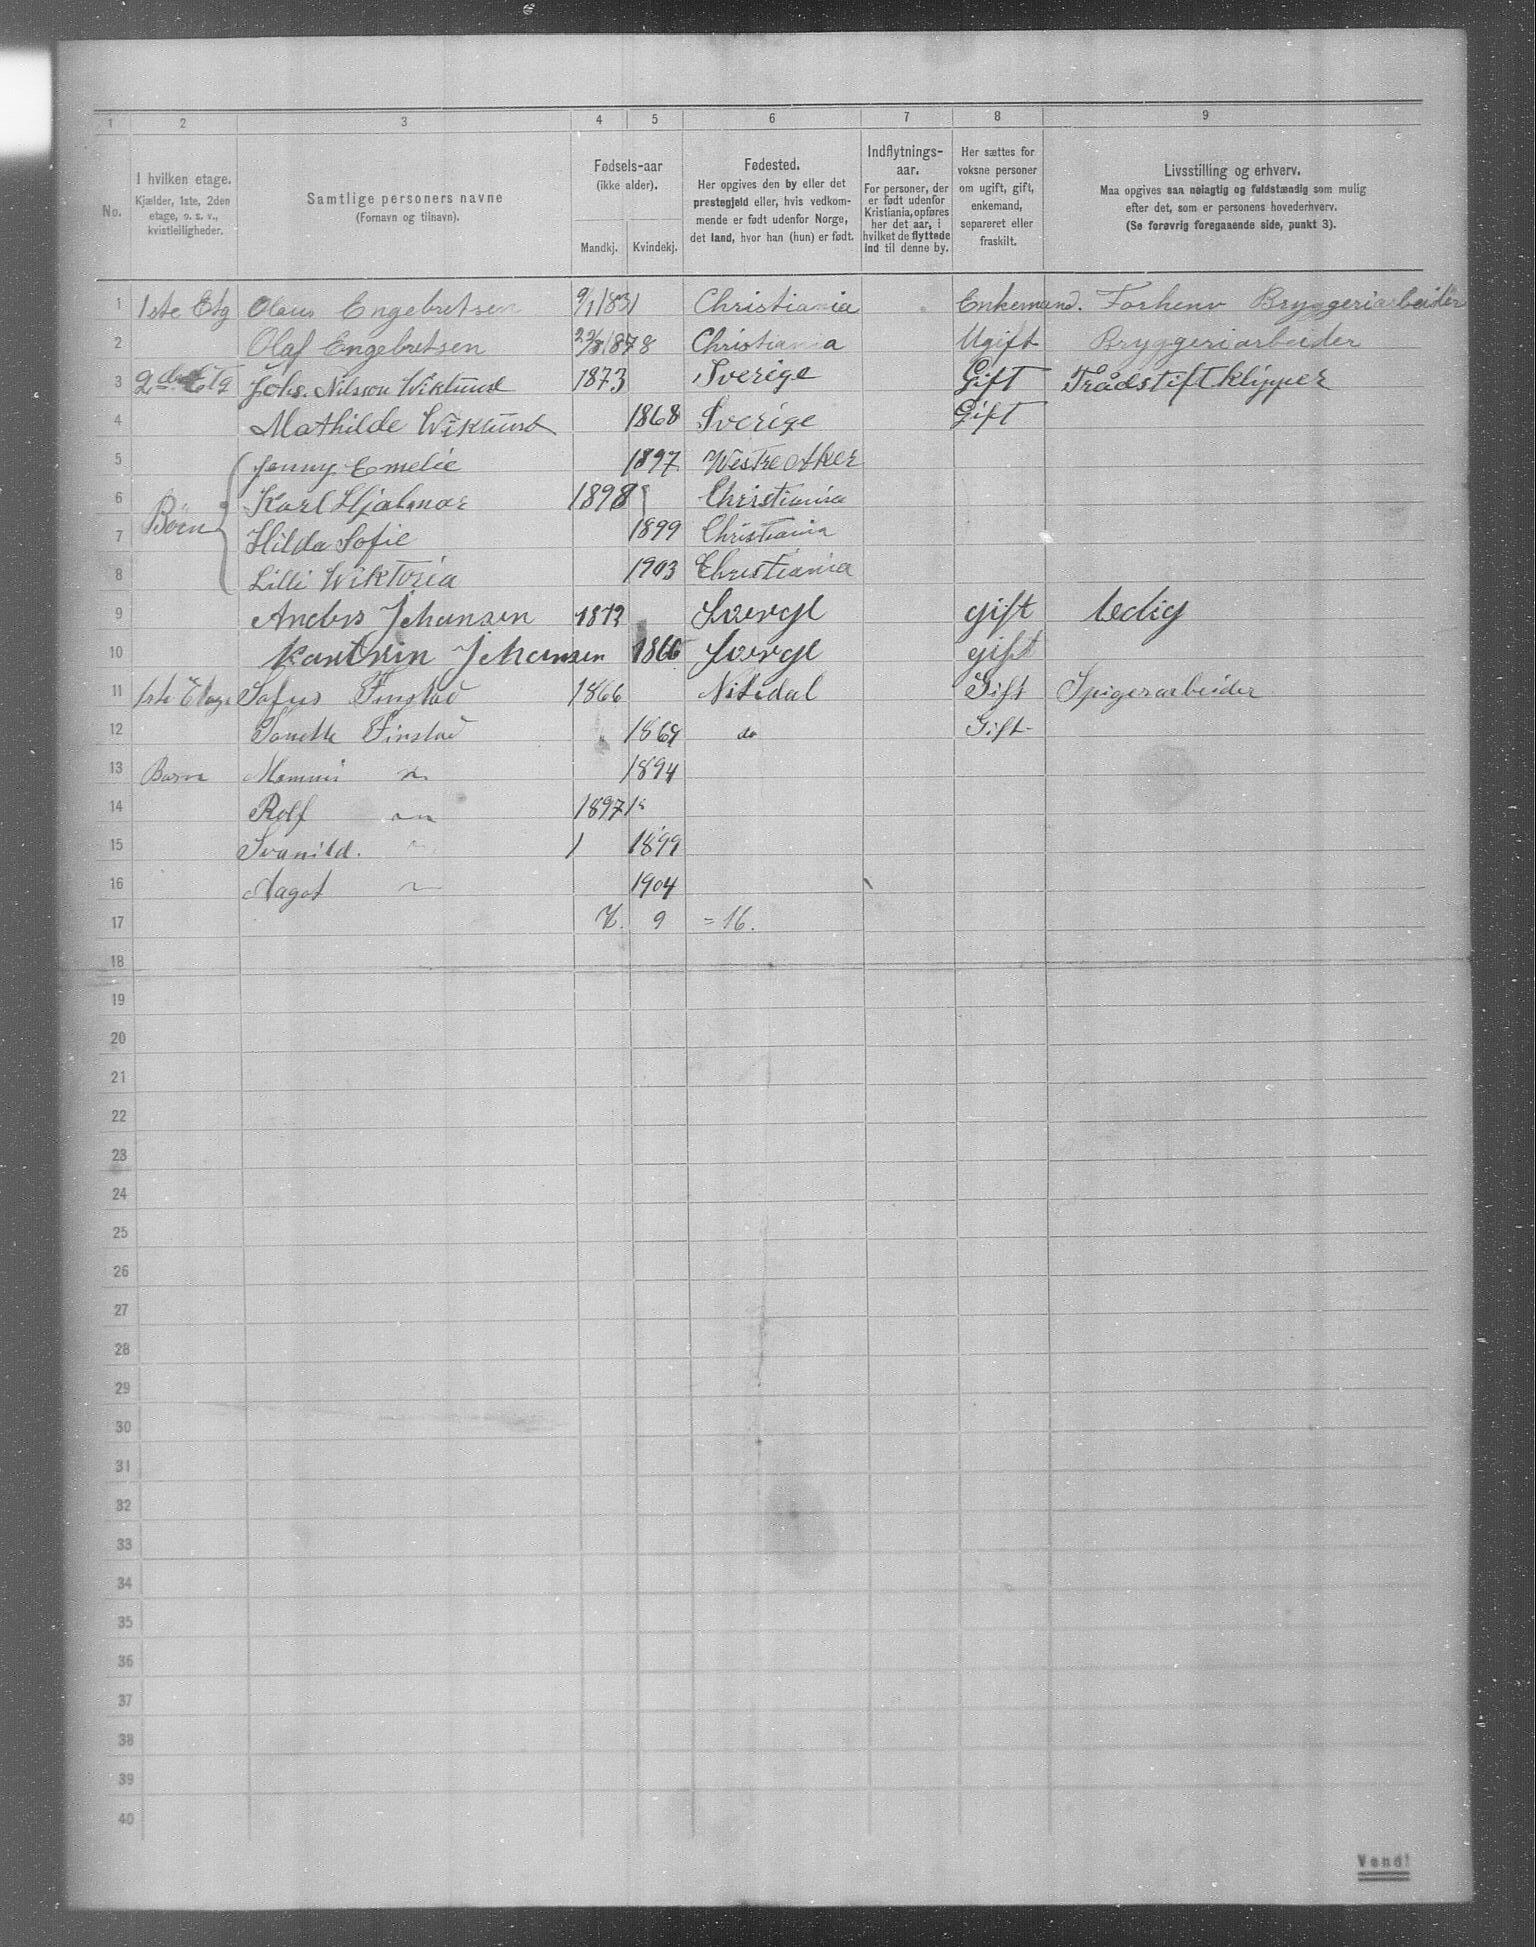 1 2 3 4 5 6 7 8 9
No.
I hvilken etage.
Kjælder, 1ste, 2den
etage, o. s. v.,
kvistleiligheder.
Samtlige personers navne
(Fornavn og tilnavn).
Fødsels-aar
(ikke alder).
Mandkj. Kvindekj.
Fødested.
Her opgives den by eller det
prestegjeld eller, hvis vedkom-
mende er født udenfor Norge,
det land, hvor han (hun) er født.
Indflytnings-
aar.
For personer, der
er født udenfor
Kristiania, opføres
her det aar, i
hvilket de flyttede
ind til denne by.
Her sættes for
voksne personer
om ugift, gift,
enkemand,
separeret eller
fraskilt.
Livsstilling og erhverv.
Maa opgives saa nøiagtig og fuldstændig som mulig
efter det, som er personens hovederhverv.
(Se forøvrig foregaaende side, punkt 3).
1 1ste Etg Olaus Engebretsen 9/1 1831 Christiania Enkemand. Forhenv Bryggeriarbeider
2 Olaf Engebretsen 1878 Christiania Ugift Bryggeriarbeider
3 2den Etg Johs. Nilsson Wiklund 1873 Sverige Gift Trådstiftklipper
4 Mathilde Wiklund 1868 Sverige Gift
5 Jenny Emelie 1897 Westre Aker
6 Børn Karl Hjalmar 1898 Christiania
7 Hilda Sofie 1899 Christiania
8 Lilli Wiktoria 1903 Christiania
9 Anders Johansen 1873 Sverge gift ledig
10 Kantrin Johansen 1866 Sverge gift
11 1ste Etage Sofus Finstad 1866 Nitedal Gift Spigerarbeider
12 Finstad 1869 do Gift
13 Børn 1894
14 Rolf 1897
15 Svanild. 1899
16 Aagot 1904
17 7. 9 = 16.
18
19
20
21
22
23
24
25
26
27
28
29
30
31
32
33
34
35
36
37
38
39
40
Vend!